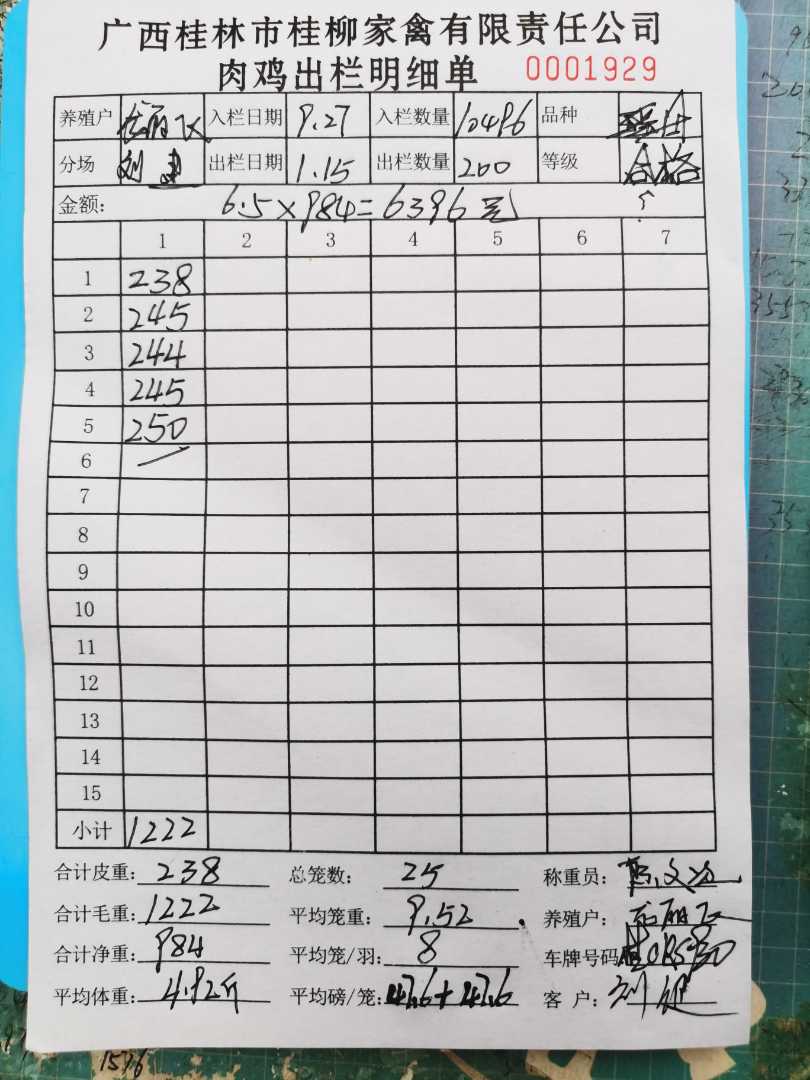 广西桂林市桂柳家禽有限责任公司
肉鸡出栏明细单 0001929
养殖户 入栏日期 9.27 入栏数量 10496 品种
分场 刘 出栏日期 1.15 出栏数量 200 等级 合格
金额: 6.5×984=6396元
1 2 3 4 5 6 7
1 238
2 245
3 244
4 245
5 250
6
7
8
9
10
11
12
13
14
15
小计 1222
合计皮重: 238 总笼数: 25 称重员:
合计毛重: 1222 平均笼重: 9.52 养殖户:
合计净重: 984 平均笼/羽: 8 车牌号码
平均体重: 4.92斤 平均磅/笼: 47.6+47.6 客户: 刘
1576